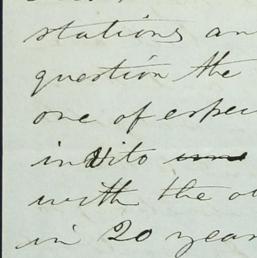 stations an
question the
one of espec
in Vito
with the o
in 20 year